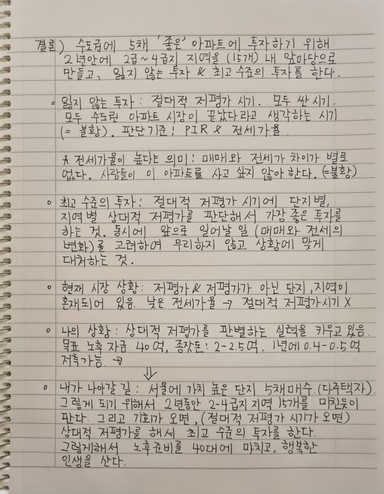 결론) 수도권에 5채 '좋은' 아파트에 투자하기 위해
2년안에 2급~4급지 지역을 (15개) 내 앞마당으로
만들고, 잃지 않는 투자 & 최고수준의 투자를 한다.
• 잃지 않는 투자 : 절대적 저평가 시기. 모두 싼 시기.
모두 수도권 아파트 시장이 끝났다라고 생각하는 시기
(= 불황). 판단기준! PIR & 전세가율
☆ 전세가율이 높다는 의미 : 매매와 전세가 차이가 별로
없다. 사람들이 이 아파트를 사고 싶지 않아 한다. (=불황)
• 최고 수준의 투자 : 절대적 저평가 시기에 단지별,
지역별 상대적 저평가를 판단해서 가장 좋은 투자를
하는 것. 동시에 앞으로 일어날 일 (매매와 전세의
변화)를 고려하여 무리하지 않고 상황에 맞게
대처하는 것.
• 현재 시장 상황 : 저평가 & 저평가가 아닌 단지, 지역이
혼재되어 있음. 낮은 전세가율 → 절대적 저평가시기 X
• 나의 상황 : 상대적 저평가를 판별하는 실력을 키우고 있음.
목표 노후 자금 40억, 종잣돈! 2-2.5억. 1년에 0.4-0.5억
저축가능. →
⇓
• 내가 나아갈 길 : 서울에 가치 높은 단지 5채 매수 (다주택자)
그렇게 되기 위해서 2년동안 2-4급지 지역 15개를 미친듯이
판다. 그리고 기회가 오면, (절대적 저평가 시기가 오면)
상대적 저평가를 해서 최고 수준의 투자를 한다.
그렇게해서 노후준비를 40대에 마치고, 행복한
인생을 산다.